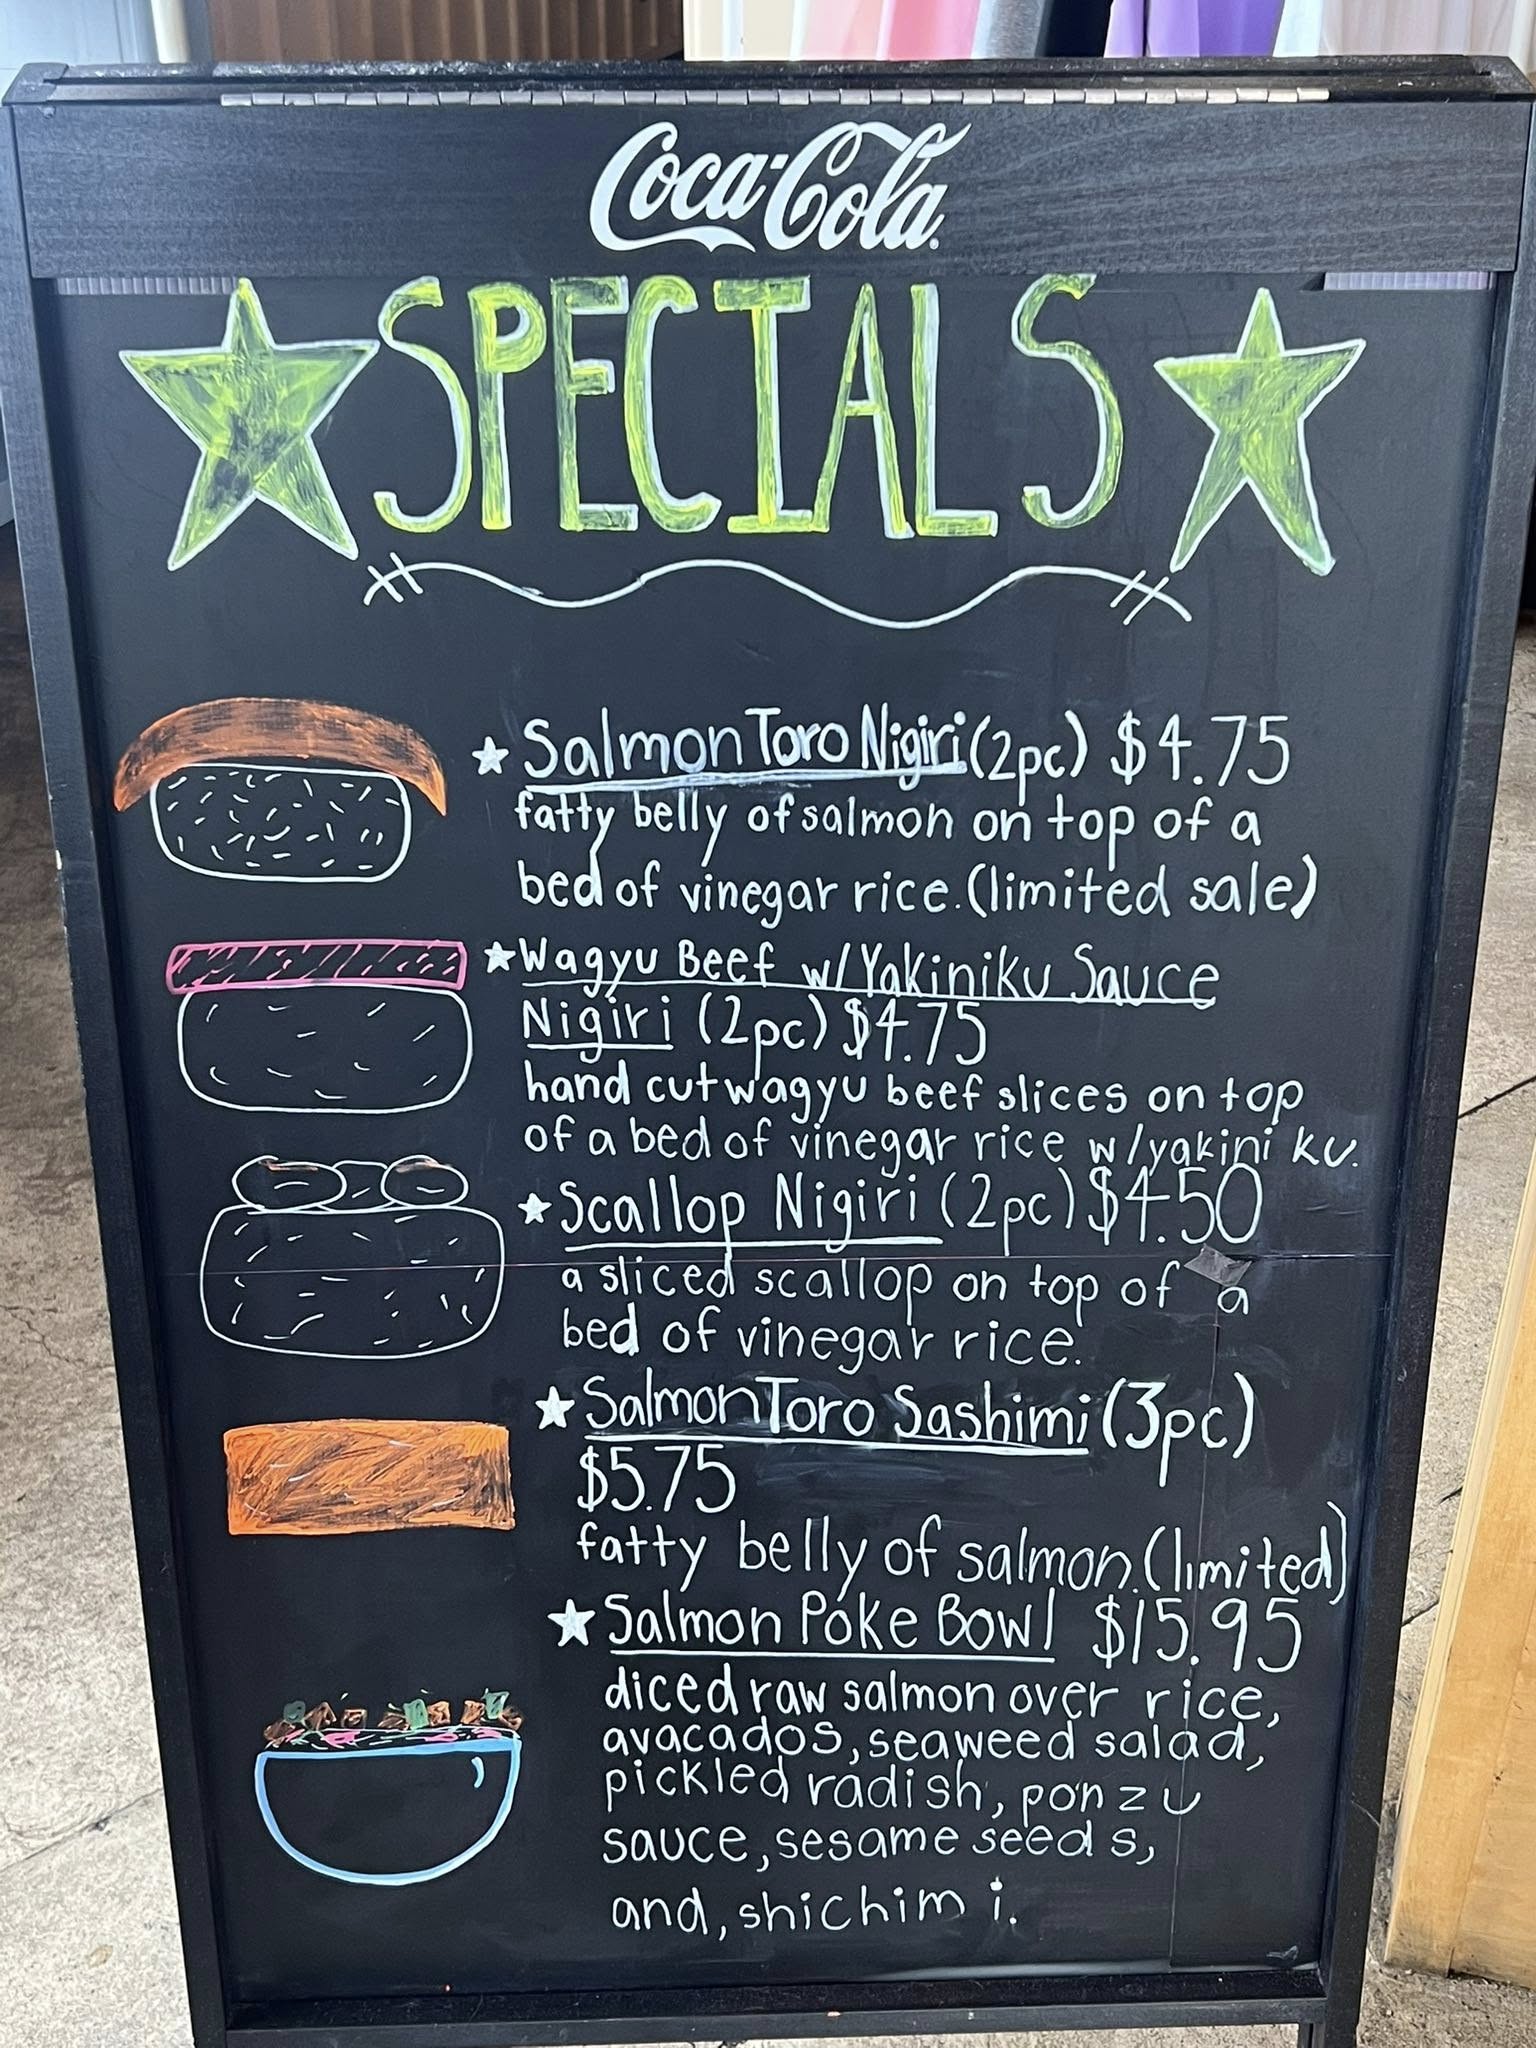 Coca-Cola
SPECIALS
Salmon Toro Nigiri (2pc) $4.75
fatty belly of salmon on top of a
bed of vinegar rice. (limited sale)
Wagyu Beef w/Yakiniku Sauce
Nigiri (2pc) $4.75
hand cut wagyu beef slices on top
of a bed of vinegar rice w/yakiniku.
Scallop Nigiri (2pc) $4.50
a sliced scallop on top of a
bed of vinegar rice.
Salmon Toro Sashimi (3pc)
$5.75
fatty belly of salmon. (limited)
Salmon Poke Bowl $15.95
diced raw salmon over rice,
avacados, seaweed salad,
pickled radish, ponzu
sauce, sesame seeds,
and, shichimi.